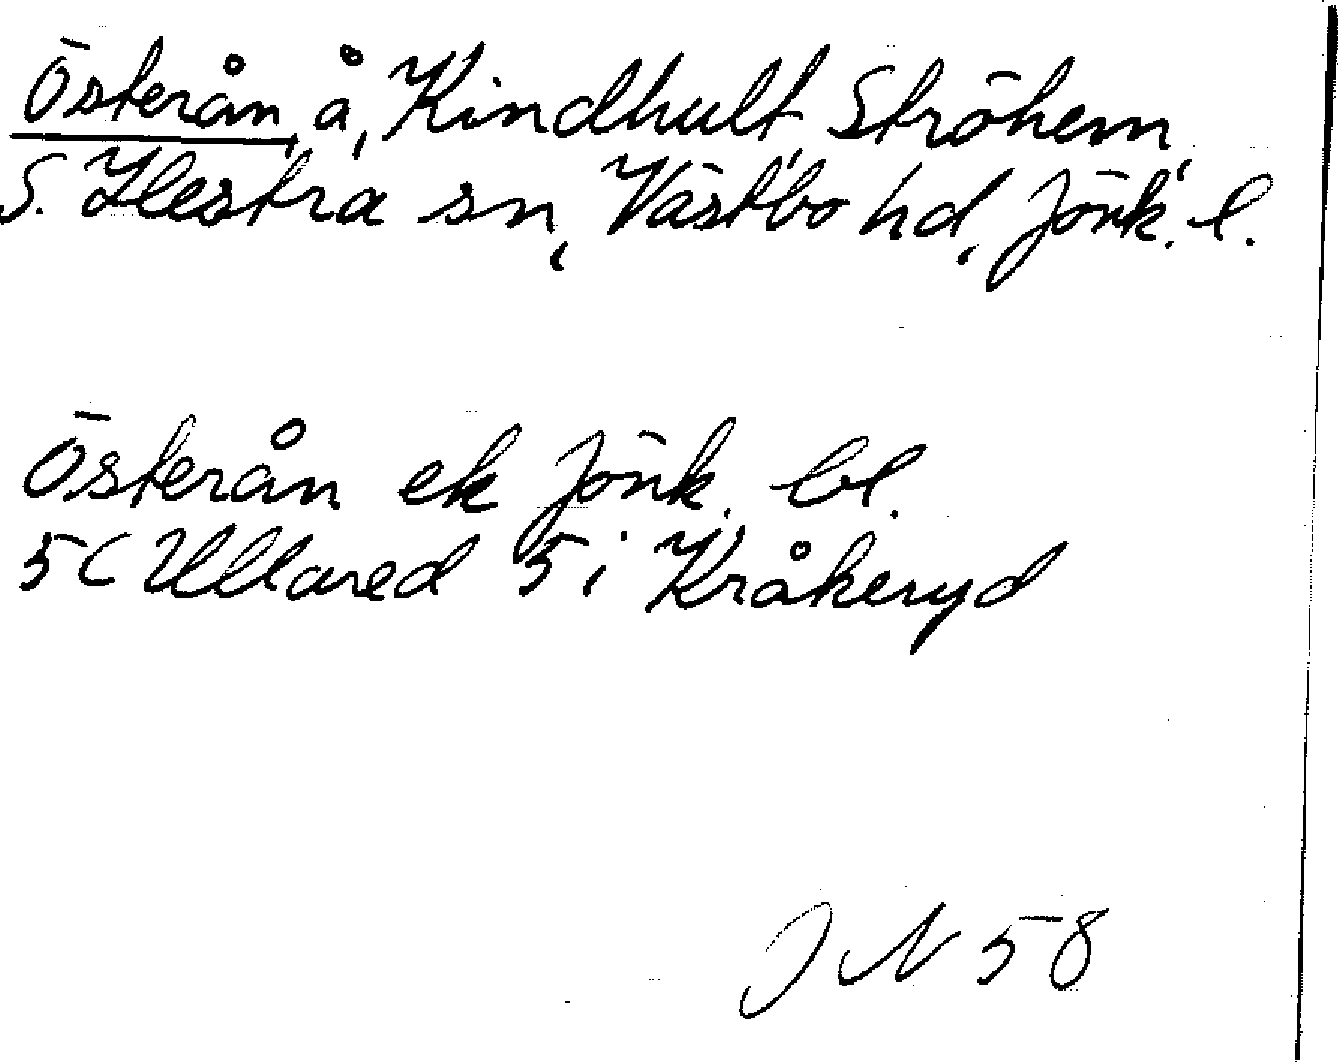 Österån, å, Kindhult, Ströhem,
S. Hestra sn, Västbo hd, Jönk. l.
Österån ek Jönk. bl.
5C Ullared 5 i Kråkeryd
JN 58